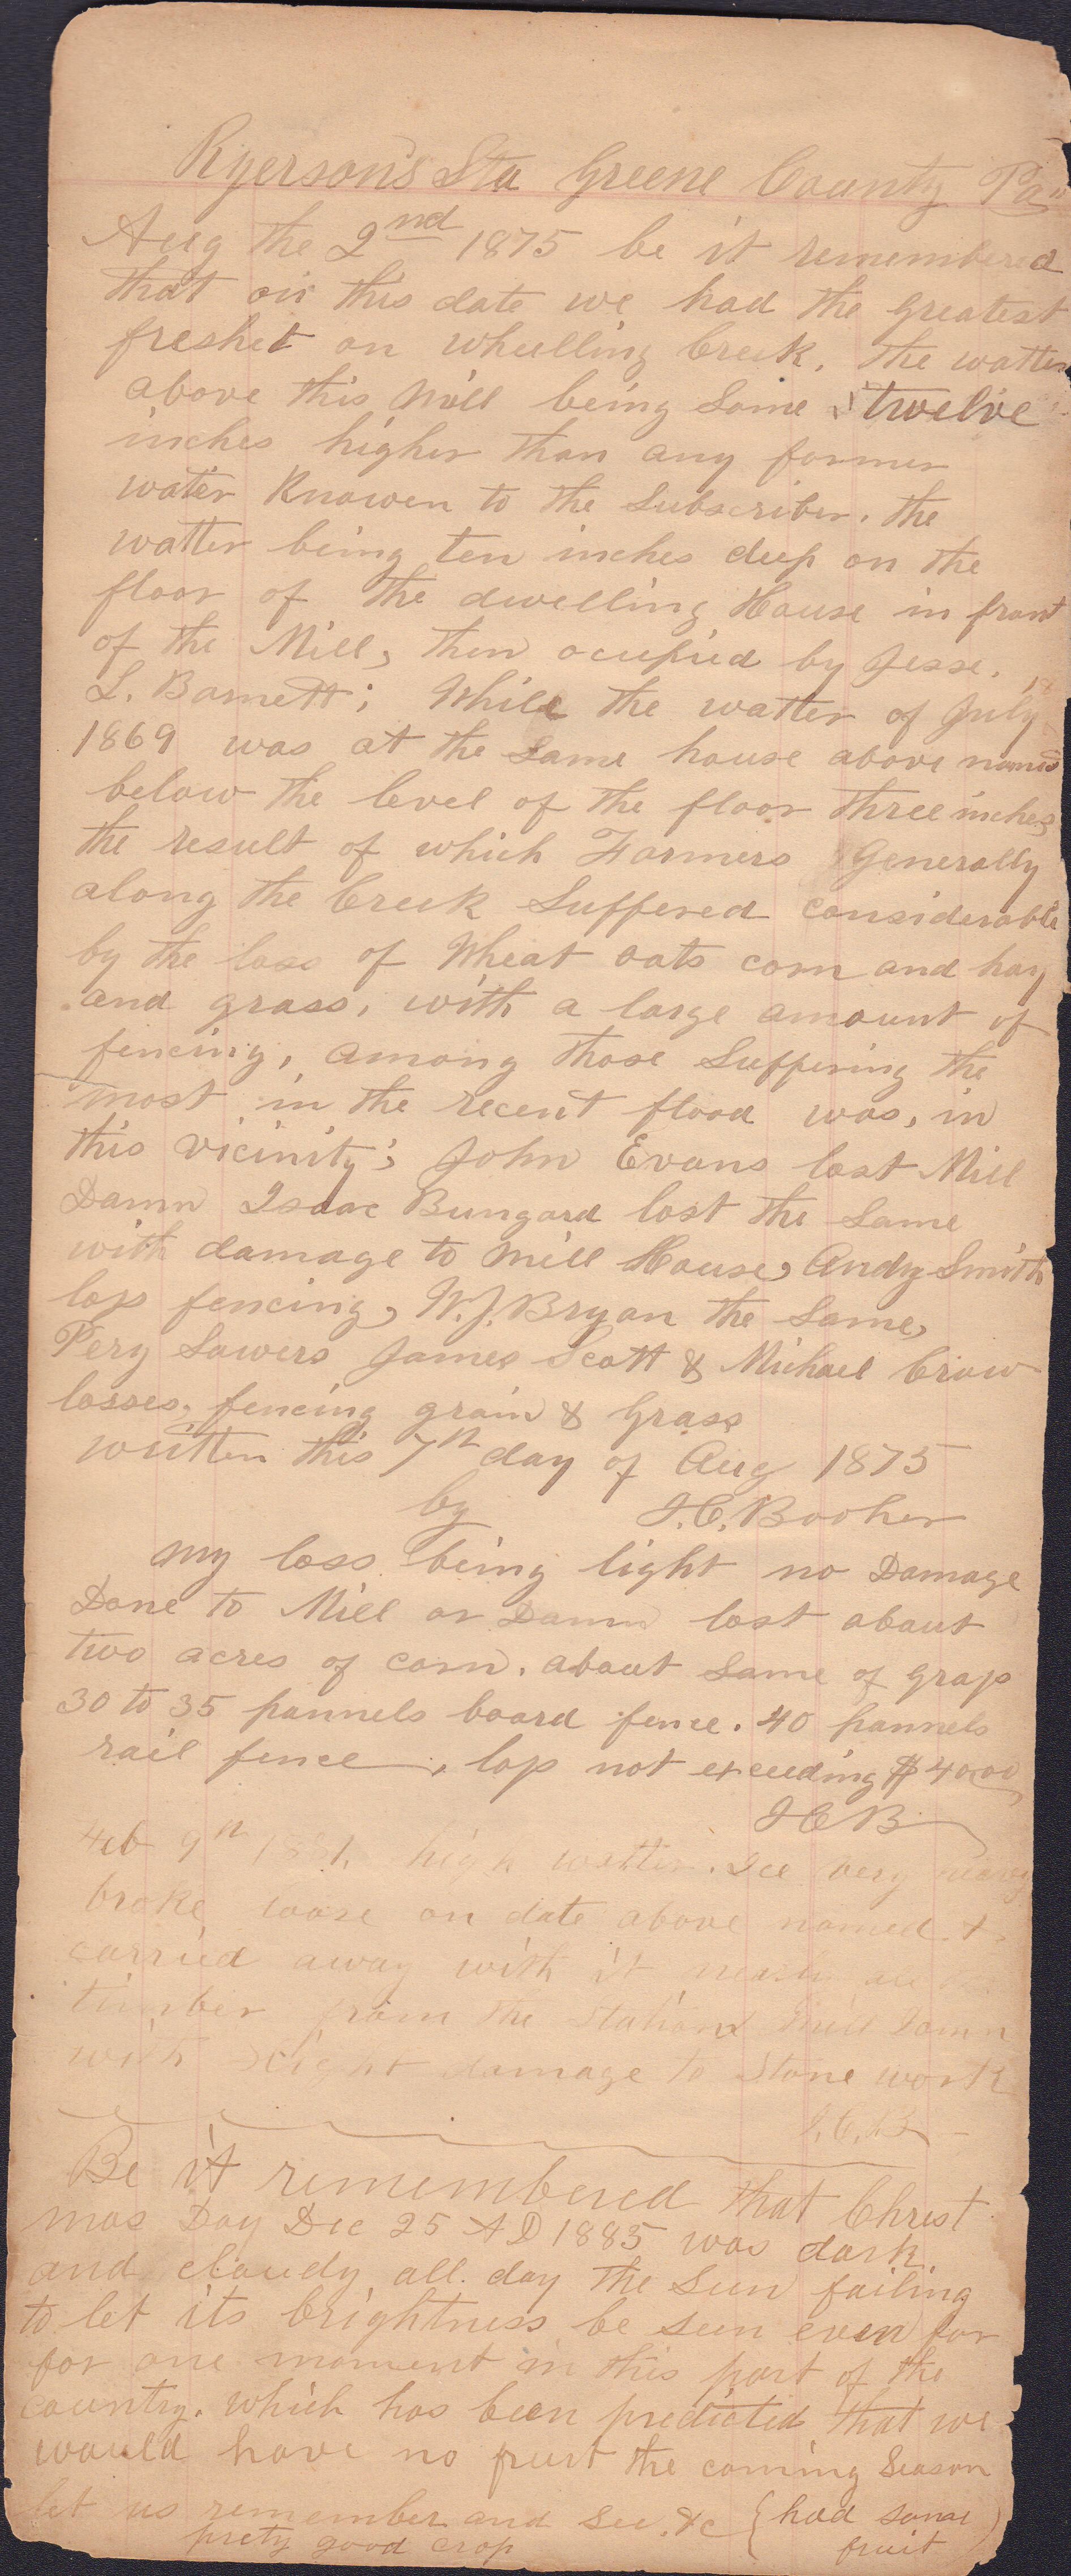 Ryerson's Sta Greene County Pa"
Aug the 2nd 1875 be it remembered
that on this date we had the greatest
freshet on wheelling Creek. the watter
above this Mill being Some twelve
inches higher than any former
water Knowen to the Subscriber. the
watter being ten inches deep on the
floor of the dwelling House in front
of the Mill, then ocupied by Jesse.
L. Barnett; While the watter of July
1869 was at the Same house above named
below the level of the floor three inches
the result of which Farmers Generally
along the Creek Suffered Considerable
by the loss of Wheat oats corn and hay
and grass, with a large amount of
fencing, among those Suffering the
most in the recent flood was, in
this vicinity; John Evans lost Mill
Damn Isaac Bungard lost the Same
with damage to Mill House, Andy Smith
loss fencing, W.J. Bryan the Same,
Pery Sowers James Scott & Michael Crow
losses, fencing grain & Grass
written this 7th day of Aug 1875
by J.C. Booher
my loss being light no Damage
Done to Mill or Damn lost about
two acres of corn. about Same of grass
30 to 35 pannels board fence. 40 pannels
rail fence, loss not exceeding $40.00
J C B
Feb 9th 1881. high watter. Ice very heavy
broke loose on date above named &
carried away with it nearly all
timber from the Station Mill Damn
with Slight damage to Stone work
J.C.B
Be it remembered that Christ
mas Day Dec 25 AD 1885 was dark.
and cloudy all day the Sun failing
to let its brightness be seen even for
for one moment in this part of the
country. which has been predicted that we
would have no fruit the coming Season
let us remember and See. &c { had some
prety good crop fruit )